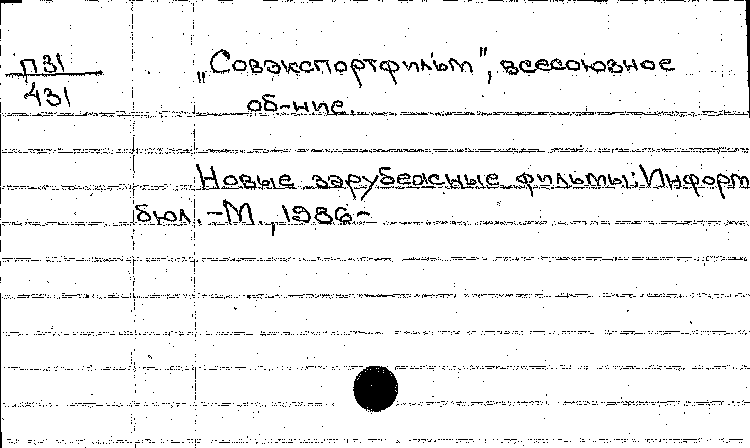 П31
431
„Совэкспортфильм", всесоюзное
об-ние.
Новые зарубежные фильмы: Информ
бюл. - М., 1986-